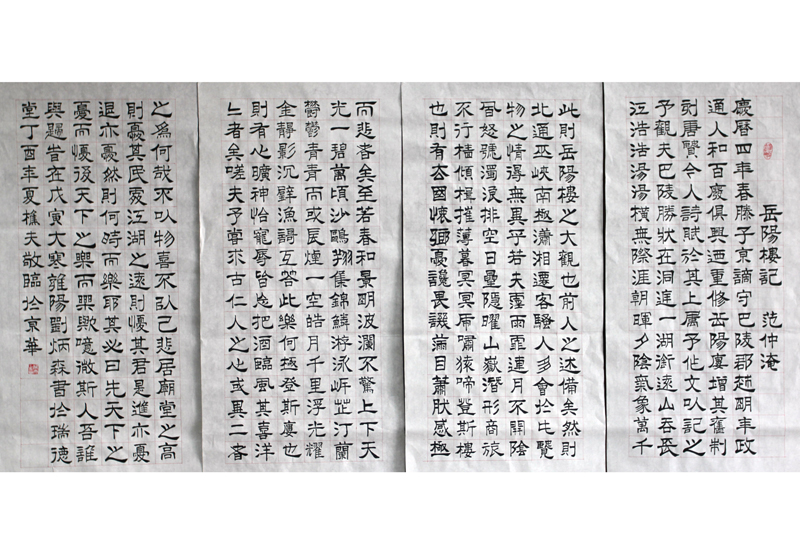 岳陽樓記 范仲淹
慶曆四年春滕子京謫守巴陵郡越明年政
通人和百廢俱興迺重修岳陽樓增其舊制
刻唐賢今人詩賦於其上屬予作文以記之
予觀夫巴陵勝狀在洞庭一湖銜遠山吞長
江浩浩湯湯橫無際涯朝暉夕陰氣象萬千
此則岳陽樓之大觀也前人之述備矣然則
北通巫峽南極瀟湘遷客騷人多會於此覽
物之情得無異乎若夫霪雨霏連月不開陰
風怒號濁浪排空日星隱曜山嶽潛形商旅
不行檣傾楫摧薄暮冥冥虎嘯猿啼登斯樓
也則有去國懷鄉憂讒畏譏滿目蕭然感極
而悲者矣至若春和景明波瀾不驚上下天
光一碧萬頃沙鷗翔集錦鱗游泳岸芷汀蘭
鬱鬱青青而或長煙一空皓月千里浮光耀
金靜影沉璧漁謌互答此樂何極登斯樓也
則有心曠神怡寵辱皆忘把酒臨風其喜洋
〻者矣嗟夫予嘗求古仁人之心或異二者
之為何哉不以物喜不以己悲居廟堂之高
則憂其民處江湖之遠則憂其君是進亦憂
退亦憂然則何時而樂耶其必曰先天下之
憂而憂後天下之樂而樂歟噫微斯人吾誰
與歸昔在戊寅大寒雒陽劉炳森書於瑞德
堂丁酉年夏樵夫敬臨於京華